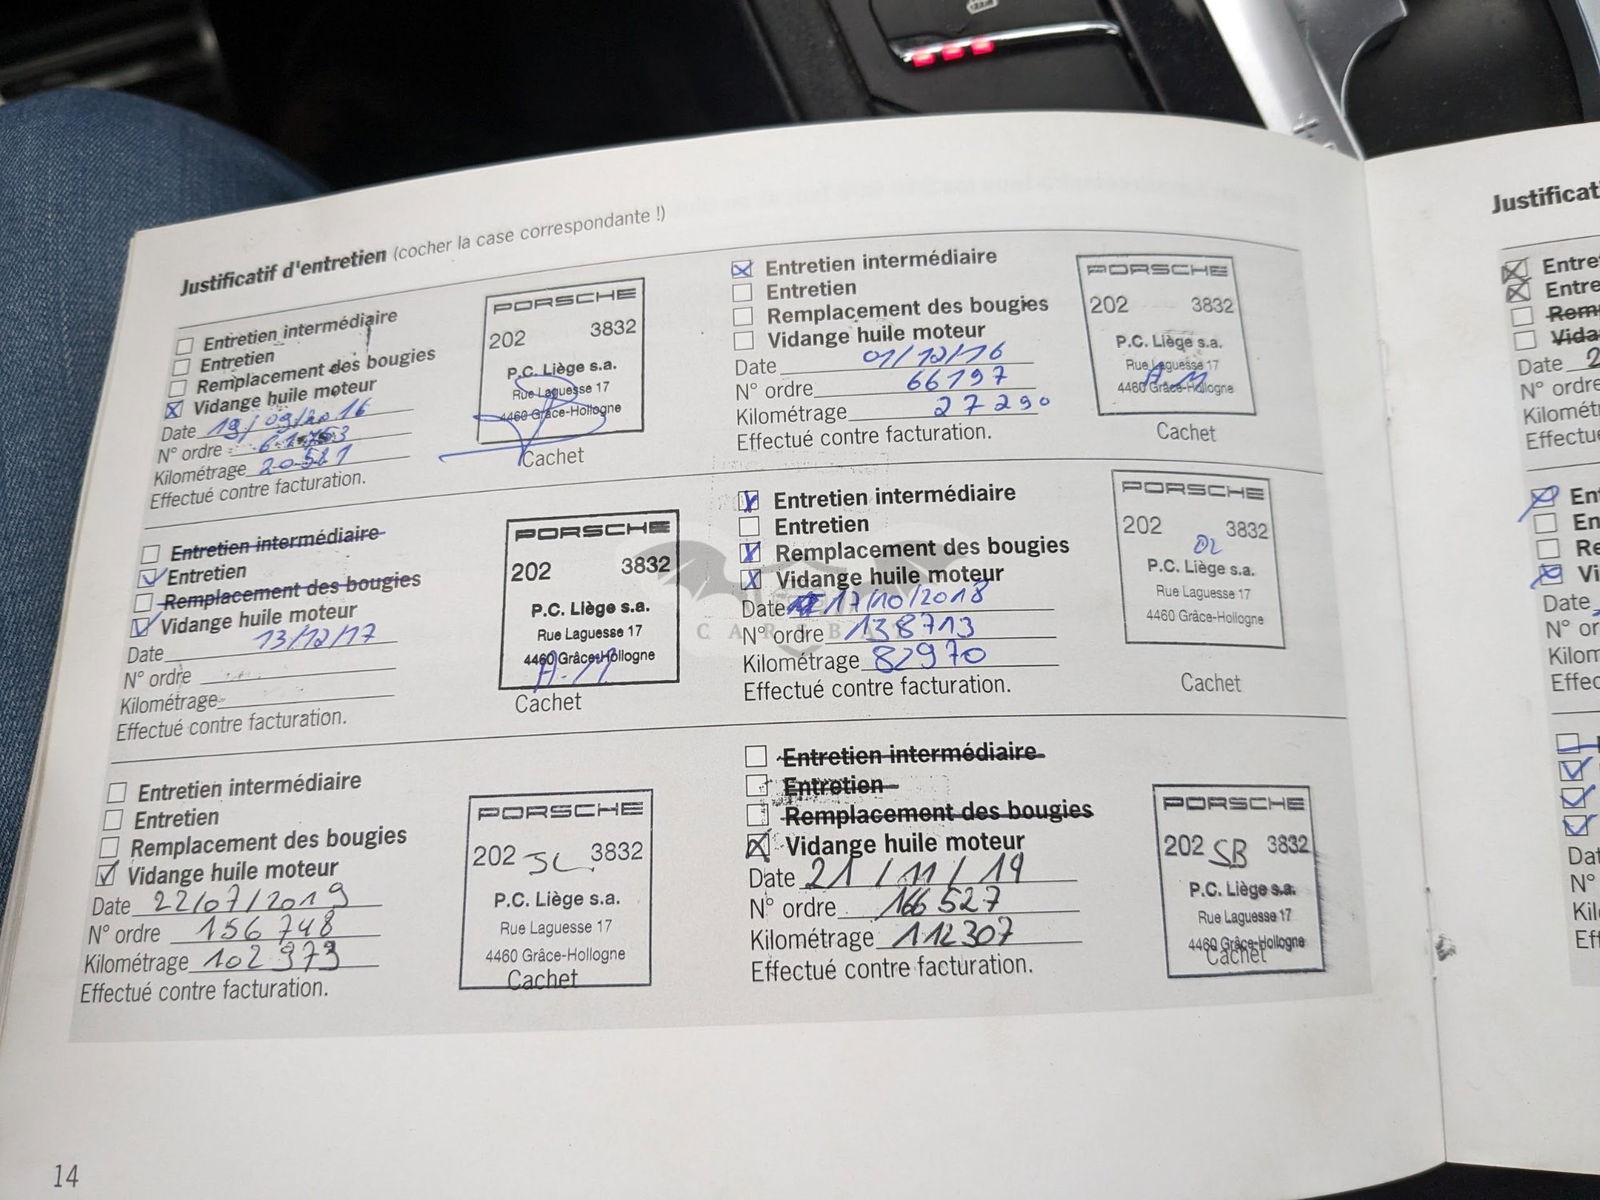 Justificatif d'entretien (cocher la case correspondante !)
Entretien intermédiaire
Entretien
Remplacement des bougies
Vidange huile moteur
Date 19/09/2016
N° ordre 61753
Kilométrage 20581
Effectué contre facturation.
PORSCHE
202 3832
P.C. Liège s.a.
Rue Laguesse 17
4460 Grâce-Hollogne
Cachet
Entretien intermédiaire
Entretien
Remplacement des bougies
Vidange huile moteur
Date 01/12/16
N° ordre 66197
Kilométrage 27290
Effectué contre facturation.
PORSCHE
202 3832
P.C. Liège s.a.
Rue Laguesse 17
4460 Grâce-Hollogne
Cachet
Entretien intermédiaire
Entretien
Remplacement des bougies
Vidange huile moteur
Date 13/12/17
N° ordre
Kilométrage
Effectué contre facturation.
PORSCHE
202 3832
P.C. Liège s.a.
Rue Laguesse 17
4460 Grâce-Hollogne
Cachet
Entretien intermédiaire
Entretien
Remplacement des bougies
Vidange huile moteur
Date 17/10/2018
N° ordre 138713
Kilométrage 82970
Effectué contre facturation.
PORSCHE
202 3832
P.C. Liège s.a.
Rue Laguesse 17
4460 Grâce-Hollogne
Cachet
Entretien intermédiaire
Entretien
Remplacement des bougies
Vidange huile moteur
Date 22/07/2019
N° ordre 156748
Kilométrage 102973
Effectué contre facturation.
PORSCHE
202 JL 3832
P.C. Liège s.a.
Rue Laguesse 17
4460 Grâce-Hollogne
Cachet
Entretien intermédiaire
Entretien
Remplacement des bougies
Vidange huile moteur
Date 21/11/19
N° ordre 166527
Kilométrage 112307
Effectué contre facturation.
PORSCHE
202 SB 3832
P.C. Liège s.a.
Rue Laguesse 17
4460 Grâce-Hollogne
Cachet
14